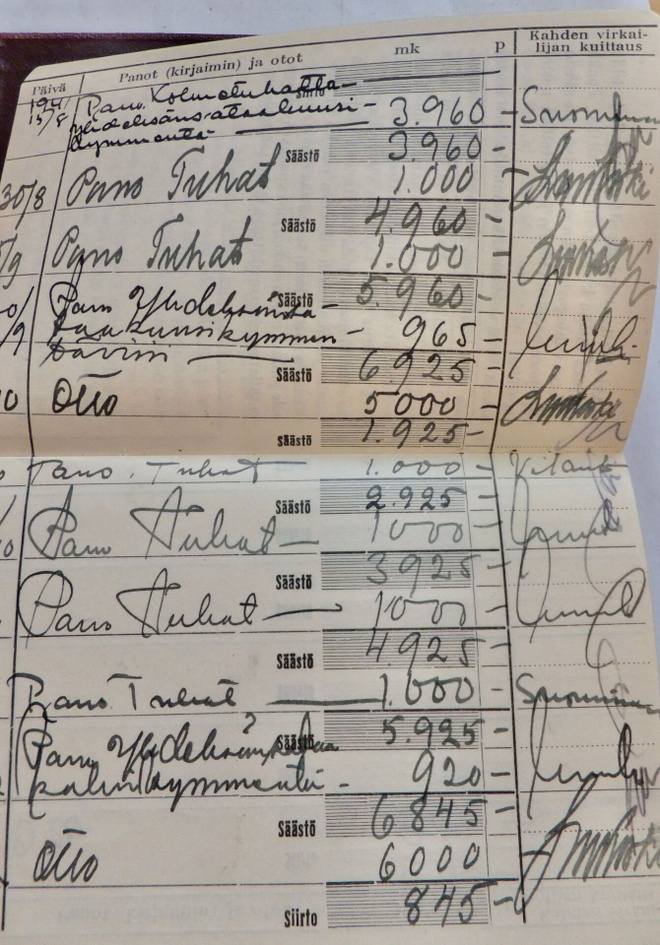 Päivä Panot (kirjaimin) ja otot mk p Kahden virkai-
lijan kuittaus
Siirto
194
15/8 Pano Kolmetuhatta-
yhdeksänsataakuusi- 3.960 –
kymmentä
Säästö 3.960 –
30/8 Pano Tuhat 1.000 –
Säästö 4.960 –
/9 Pano Tuhat 1.000 –
Säästö 5.960 –
Pano Yhdeksänsa-
/9 taakuusikymmen – 965 –
täviisi
Säästö 6.925 –
Otto 5000 –
Säästö 1.925 –
Pano Tuhat 1.000 –
Säästö 2.925 –
Pano Tuhat – 1000 –
Säästö 3925 –
Pano Tuhat – 1000 –
Säästö 4.925 –
Pano Tuhat – 1.000 –
Säästö 5.925 –
Pano
920 –
Säästö 6845 –
Otto 6000 –
Siirto 845 –